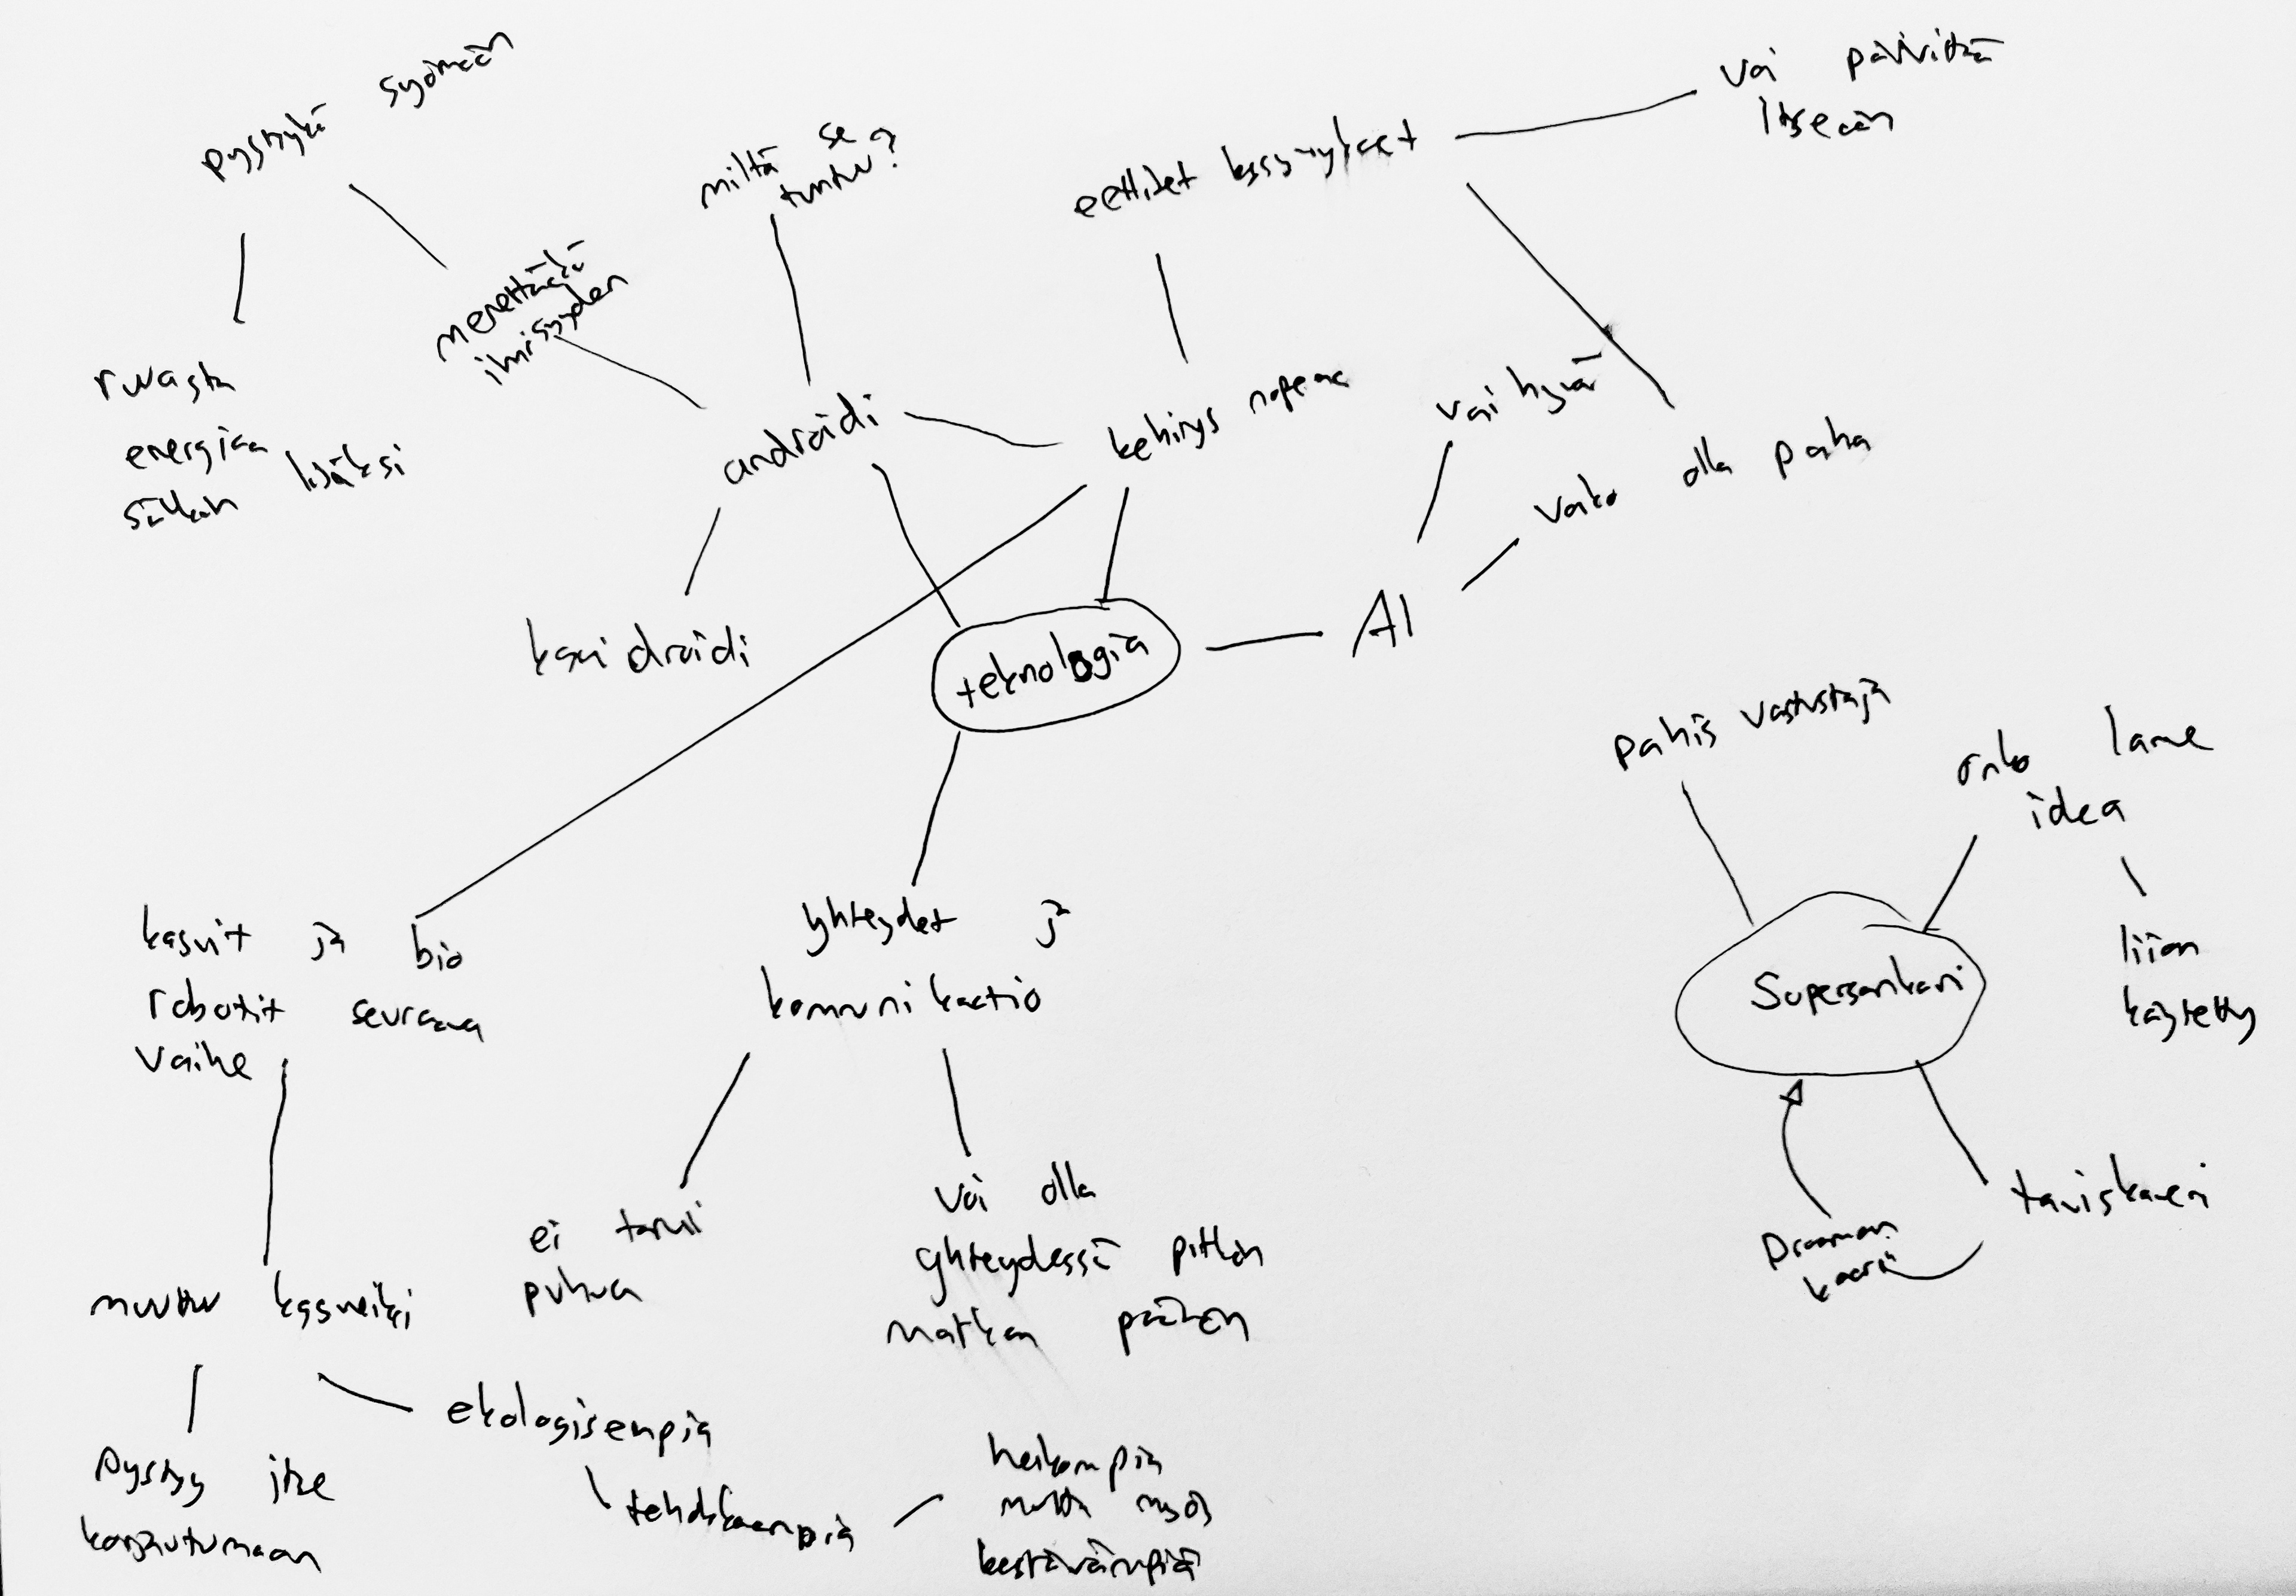 pystyykö syömään
ruuasta
energiaa
sähkön lisäksi
menettääkö
ihmisyyden
miltä se
tuntuu?
eettiset kysymykset
voi päivittää
itseään
androidi
kehitys nopeaa
vai hyvä
voiko olla paha
kasvidroidi
teknologia
AI
pahis vastustaja
onko lame
idea
liian
käytetty
Supersankari
taviskaveri
Draaman
kaari
kasvit ja bio
robotit seuraava
vaihe
yhteydet ja
kommunikaatio
ei tarvi
puhua
voi olla
yhteydessä pitkän
matkan päähän
muuttuu kasveiksi
pystyy itse
korjautumaan
ekologisempia
tehokkaampia
heikompia
mutta myös
kestävämpiä